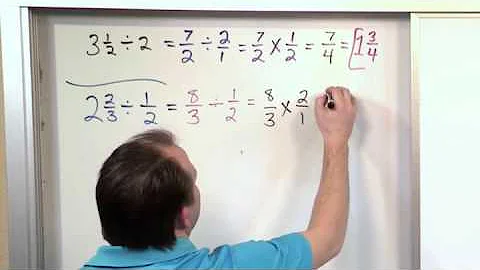 3 1/2 ÷ 2 = 7/2 ÷ 2/1 = 7/2 × 1/2 = 7/4 = 1 3/4
2 2/3 ÷ 1/2 = 8/3 ÷ 1/2 = 8/3 × 2/1